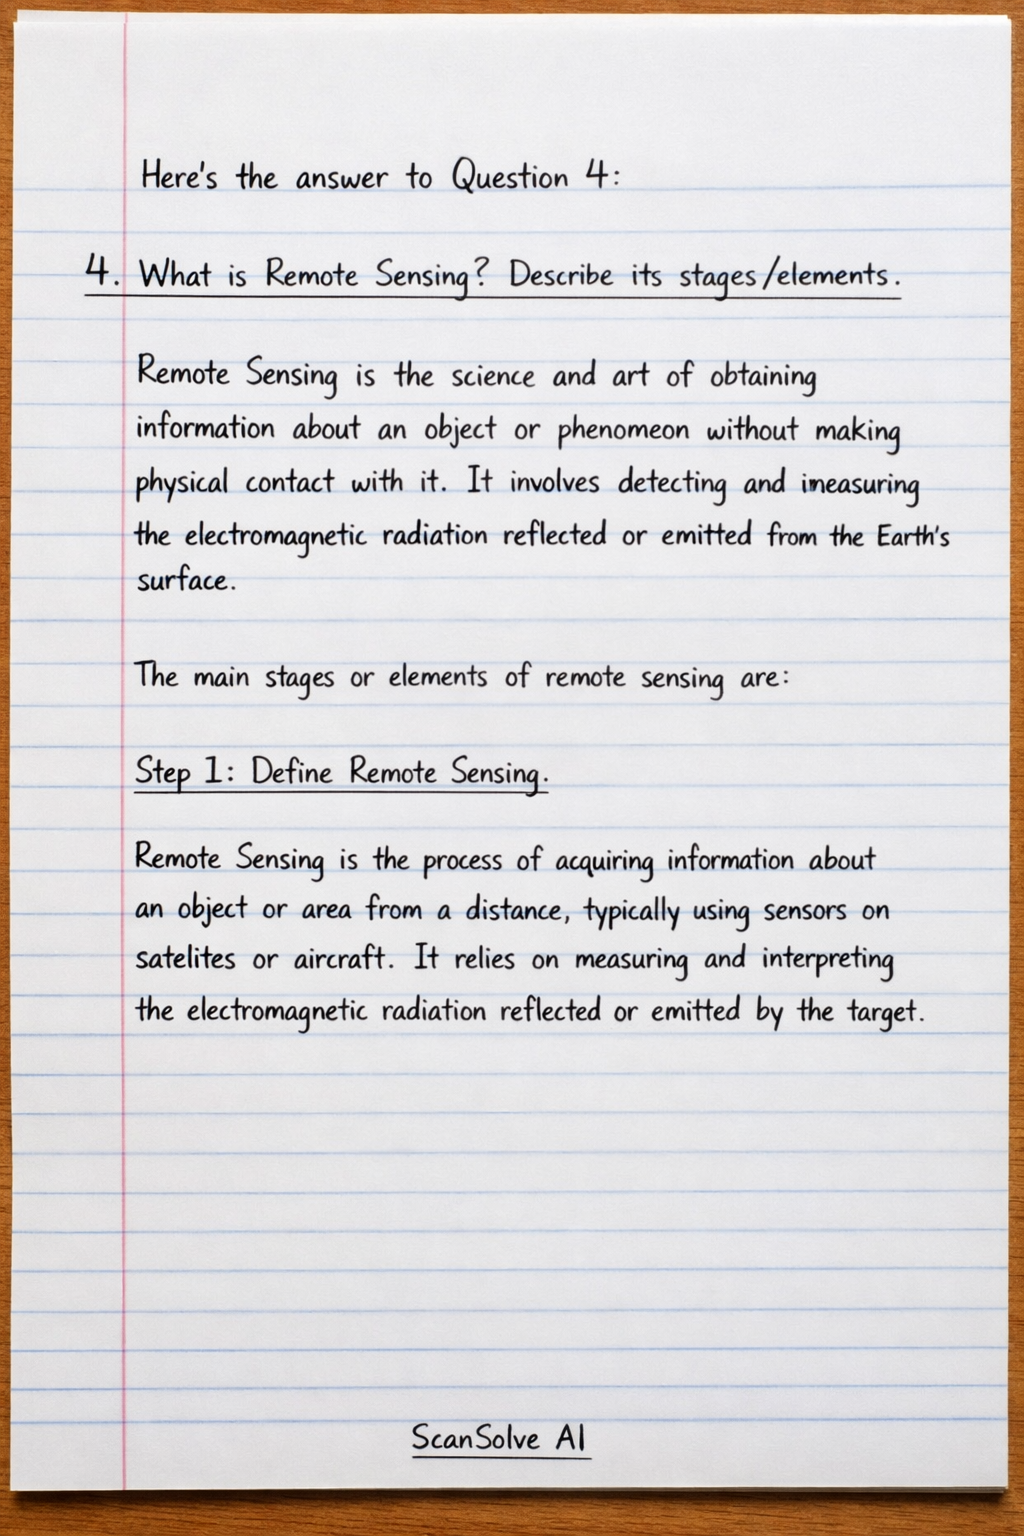 Here's the answer to Question 4:
4. What is Remote Sensing? Describe its stages/elements.
Remote Sensing is the science and art of obtaining
information about an object or phenomeon without making
physical contact with it. It involves detecting and imeasuring
the electromagnetic radiation reflected or emitted from the Earth's
surface.
The main stages or elements of remote sensing are:
Step 1: Define Remote Sensing.
Remote Sensing is the process of acquiring information about
an object or area from a distance, typically using sensors on
satelites or aircraft. It relies on measuring and interpreting
the electromagnetic radiation reflected or emitted by the target.
ScanSolve AI